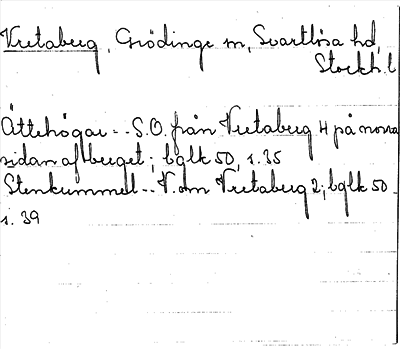 Vretaberg, Grödinge sn, Svartlösa hd,
Stockh. l
Ättehögar -- S.O. från Vretaberg 4 på norra
sidan af berget; bglk 50, s. 35
Stenkummel -- V. om Vretaberg 2; bglk 50 -
s. 39